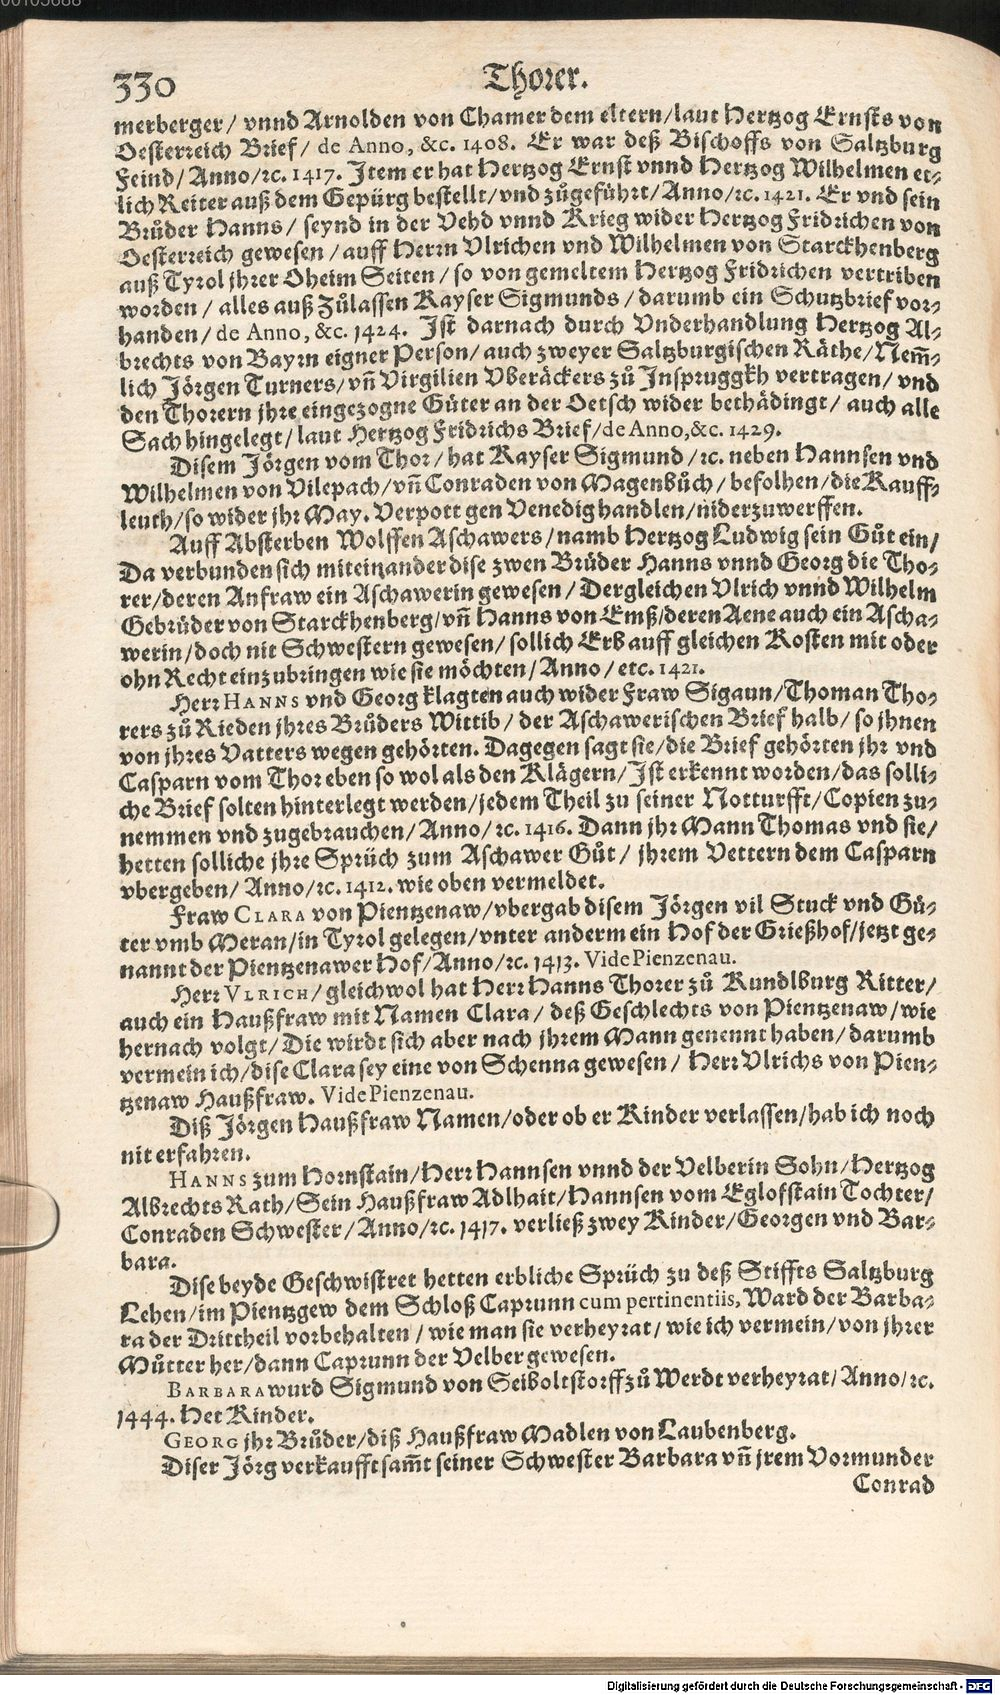 330 Thorer.
merberger / vnnd Arnolden von Chamer dem eltern/laut Hertzog Ernsts von
Oesterreich Brief / de Anno, &c. 1408. Er war deß Bischoffs von Saltzburg
Feind/ Anno/ꝛc. 1417. Item er hat Hertzog Ernst vnnd Hertzog Wilhelmen et-
lich Reiter auß dem Gepürg bestellt/vnd zůgeführt/Anno/ꝛc. 1421. Er vnd sein
Brůder Hanns / seynd in der Vehd vnnd Krieg wider Hertzog Fridrichen von
Oesterreich gewesen / auff Herrn Vlrichen vnd Wilhelmen von Starckhenberg
auß Tyrol jhrer Oheim Seiten / so von gemeltem Hertzog Fridrichen vertriben
worden / alles auß Zůlassen Kayser Sigmunds / darumb ein Schutzbrief vor-
handen / de Anno, &c. 1424. Ist darnach durch Vnderhandlung Hertzog Al-
brechts von Bayrn eigner Person/ auch zweyer Saltzburgischen Räthe/Nem̃-
lich Jörgen Turners/vñ Virgilien Vberäckers zů Inspruggkh vertragen/ vnd
den Thorern jhre eingezogne Güter an der Oetsch wider bethädingt/ auch alle
Sach hingelegt/laut Hertzog Fridrichs Brief/de Anno,&c. 1429.
Disem Jörgen vom Thor/ hat Kayser Sigmund /ꝛc. neben Hannsen vnd
Wilhelmen von Vilepach/vñ Conraden von Magenbůch/ befolhen/die Kauff-
leuth/so wider jhr May. Verpott gen Venedig handlen/niderzuwerffen.
Auff Absterben Wolffen Aschawers/namb Hertzog Ludwig sein Gůt ein/
Da verbunden sich miteinander dise zwen Brüder Hanns vnnd Georg die Tho-
rer/deren Anfraw ein Aschawerin gewesen/ Dergleichen Vlrich vnnd Wilhelm
Gebrüder von Starckhenberg/vñ Hanns von Emß/deren Aene auch ein Ascha-
werin/doch nit Schwestern gewesen/ sollich Erb auff gleichen Kosten mit oder
ohn Recht einzubringen wie sie möchten/Anno/etc. 1421.
Herr HANNS vnd Georg klagten auch wider Fraw Sigaun/Thoman Tho-
rers zů Rieden jhres Brůders Wittib/ der Aschawerischen Brief halb/ so jhnen
von jhres Vatters wegen gehörten. Dagegen sagt sie/die Brief gehörten jhr vnd
Casparn vom Thor eben so wol als den Klägern/Ist erkennt worden/das solli-
che Brief solten hinterlegt werden/jedem Theil zu seiner Notturfft/Copien zu-
nemmen vnd zugebrauchen/Anno/ꝛc. 1416. Dann jhr Mann Thomas vnd sie/
hetten solliche jhre Sprüch zum Aschawer Gůt/ jhrem Vettern dem Casparn
vbergeben/ Anno/ꝛc. 1412. wie oben vermeldet.
Fraw CLARA von Pientzenaw/vbergab disem Jörgen vil Stuck vnd Gü-
ter vmb Meran/in Tyrol gelegen/vnter anderm ein Hof der Grießhof/jetzt ge-
nannt der Pientzenawer Hof/Anno/ꝛc. 1413. Vide Pienzenau.
Herr VLRICH/gleichwol hat Herr Hanns Thorer zů Kundlburg Ritter/
auch ein Haußfraw mit Namen Clara / deß Geschlechts von Pientzenaw/wie
hernach volgt/Die wirdt sich aber nach jhrem Mann genennt haben/darumb
vermein ich/dise Clara sey eine von Schenna gewesen/ Herr Vlrichs von Pien-
tzenaw Haußfraw. Vide Pienzenau.
Diß Jörgen Haußfraw Namen/oder ob er Kinder verlassen/hab ich noch
nit erfahren.
HANNS zum Hornstain/Herr Hannsen vnnd der Velberin Sohn/Hertzog
Albrechts Rath/Sein Haußfraw Adlhait/Hannsen vom Eglofstain Tochter/
Conraden Schwester/Anno/ꝛc. 1417. verließ zwey Kinder/Georgen vnd Bar-
bara.
Dise beyde Geschwistret hetten erbliche Sprüch zu deß Stiffts Saltzburg
Lehen/im Pientzgew dem Schloß Caprunn cum pertinentiis, Ward der Barba-
ra der Drittheil vorbehalten/wie man sie verheyrat/wie ich vermein/von jhrer
Můtter her/dann Caprunn der Velber gewesen.
BARBARA wurd Sigmund von Seiboltstorff zů Werdt verheyrat/Anno/ꝛc.
1444. Het Kinder.
GEORG jhr Brůder/diß Haußfraw Madlen von Laubenberg.
Diser Jörg verkaufft sam̃t seiner Schwester Barbara vñ jrem Vormunder
Conrad
Digitalisierung gefördert durch die Deutsche Forschungsgemeinschaft - DFG